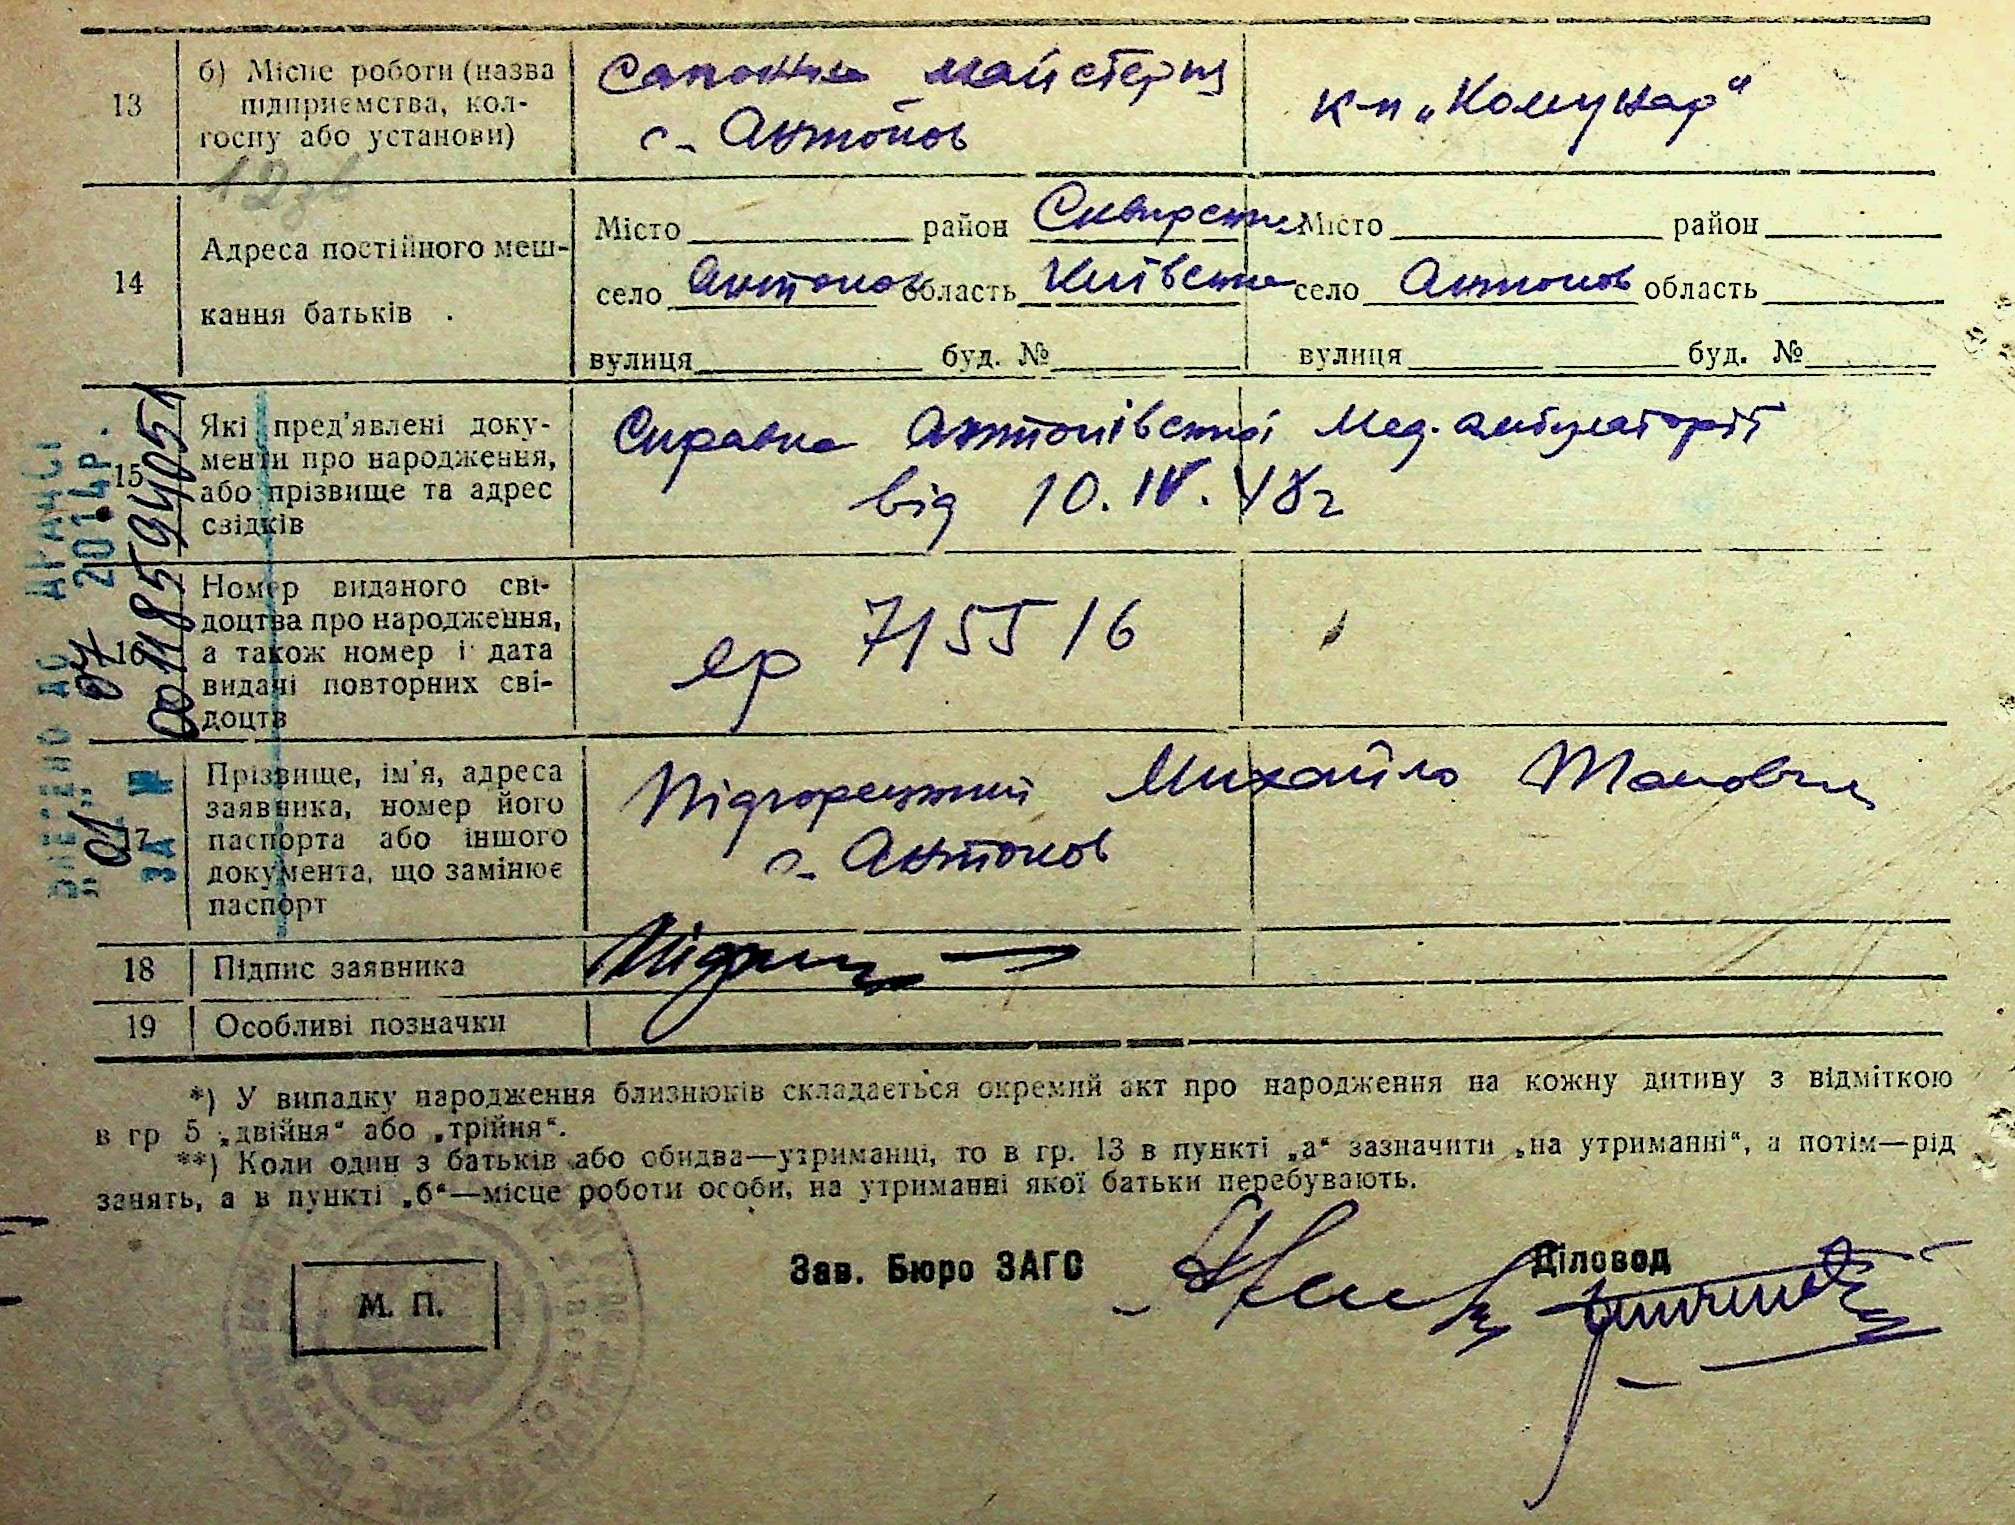 13
б) Місце роботи (назва
підприємства, кол-
госпу або установи)
Сапожна майстерня
с. Антонов
к-п „Комунар“
14
Адреса постійного меш-
кання батьків .
Місто район Сквирський
село Антонов область Київська
вулиця буд. №
Місто район
село Антонов область
вулиця буд. №
15
Які пред'явлені доку-
менти про народження,
або прізвище та адрес
свідків
Справка Антонівської Мед. амбулаторії
від 10.IV.48г
16
Номер виданого сві-
доцтва про народження,
а також номер і дата
видачі повторних сві-
доцтв
715516
17
Прізвище, ім'я, адреса
заявника, номер його
паспорта або іншого
документа, що замінює
паспорт
Підгорецький Михайло
с. Антонов
18
Підпис заявника
19
Особливі позначки
*) У випадку народження близнюків складається окремий акт про народження на кожну дитину з відміткою
в гр 5 „двійня“ або „трійня“.
**) Коли один з батьків або обидва—утриманці, то в гр. 13 в пункті „а“ зазначити „на утриманні“, а потім—рід
занять, а в пункті „б“—місце роботи особи, на утриманні якої батьки перебувають.
М. П.
Зав. Бюро ЗАГС
Діловод
ВНЕСЕНО ДО ДРАЦСІ
„01 07 2014р.
ЗА № 00118594051